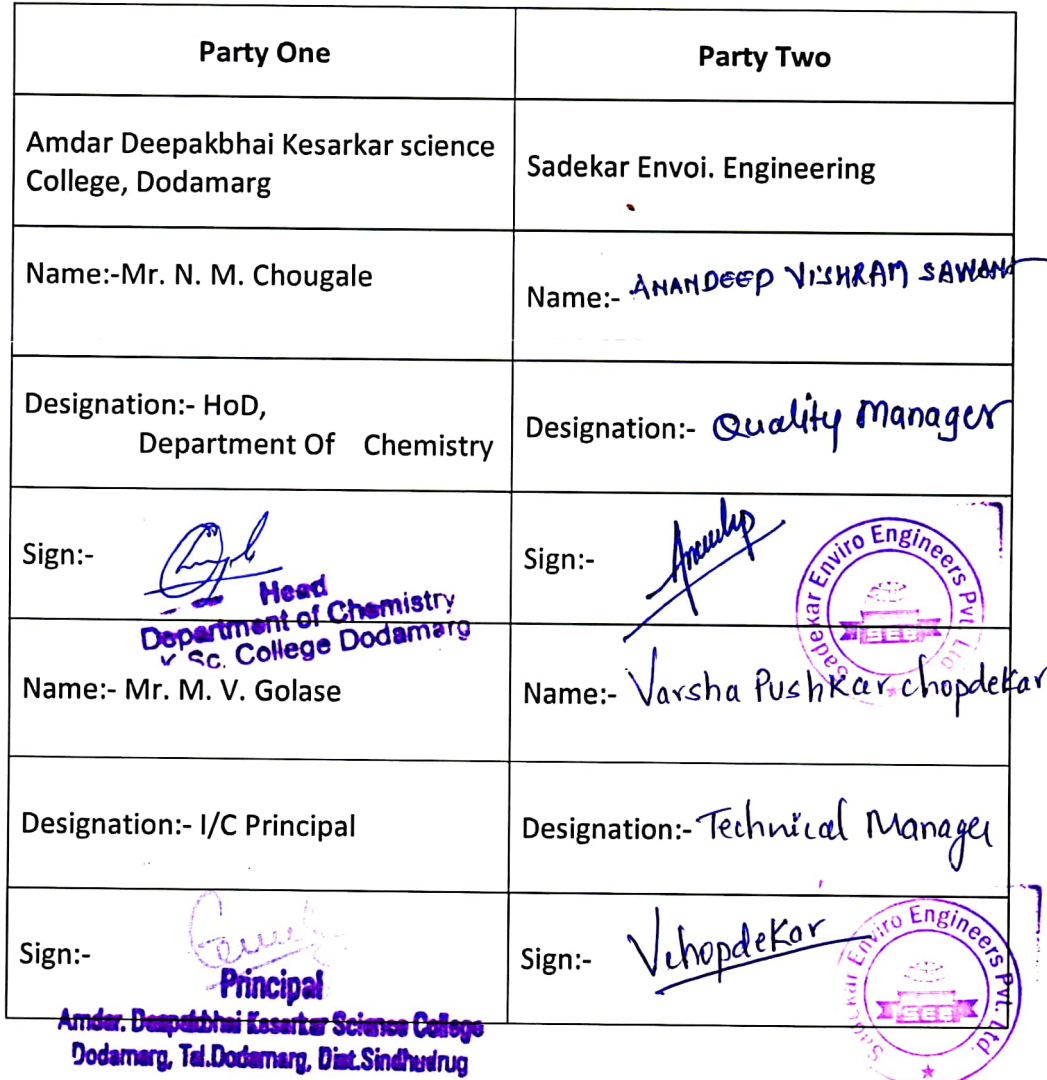 Party One
Party Two
Amdar Deepakbhai Kesarkar science
College, Dodamarg
Sadekar Envoi. Engineering
Name:-Mr. N. M. Chougale
Name:- ANANDEEP VISHRAM SAWANT
Designation:- HoD,
Department Of Chemistry
Designation:- Quality Manager
Sign:-
Head
Department of Chemistry
Sc. College Dodamarg
Sign:-
Sadekar Enviro Engineers Pvt. Ltd.
SEE
Name:- Mr. M. V. Golase
Name:- Varsha Pushkar chopdekar
Designation:- I/C Principal
Designation:- Technical Manager
Sign:-
Principal
Amdar. Deepakbhai Kesarkar Science College
Dodamarg, Tal.Dodamarg, Dist.Sindhudrug
Sign:- Vchopdekar
Sadekar Enviro Engineers Pvt. Ltd.
SEE